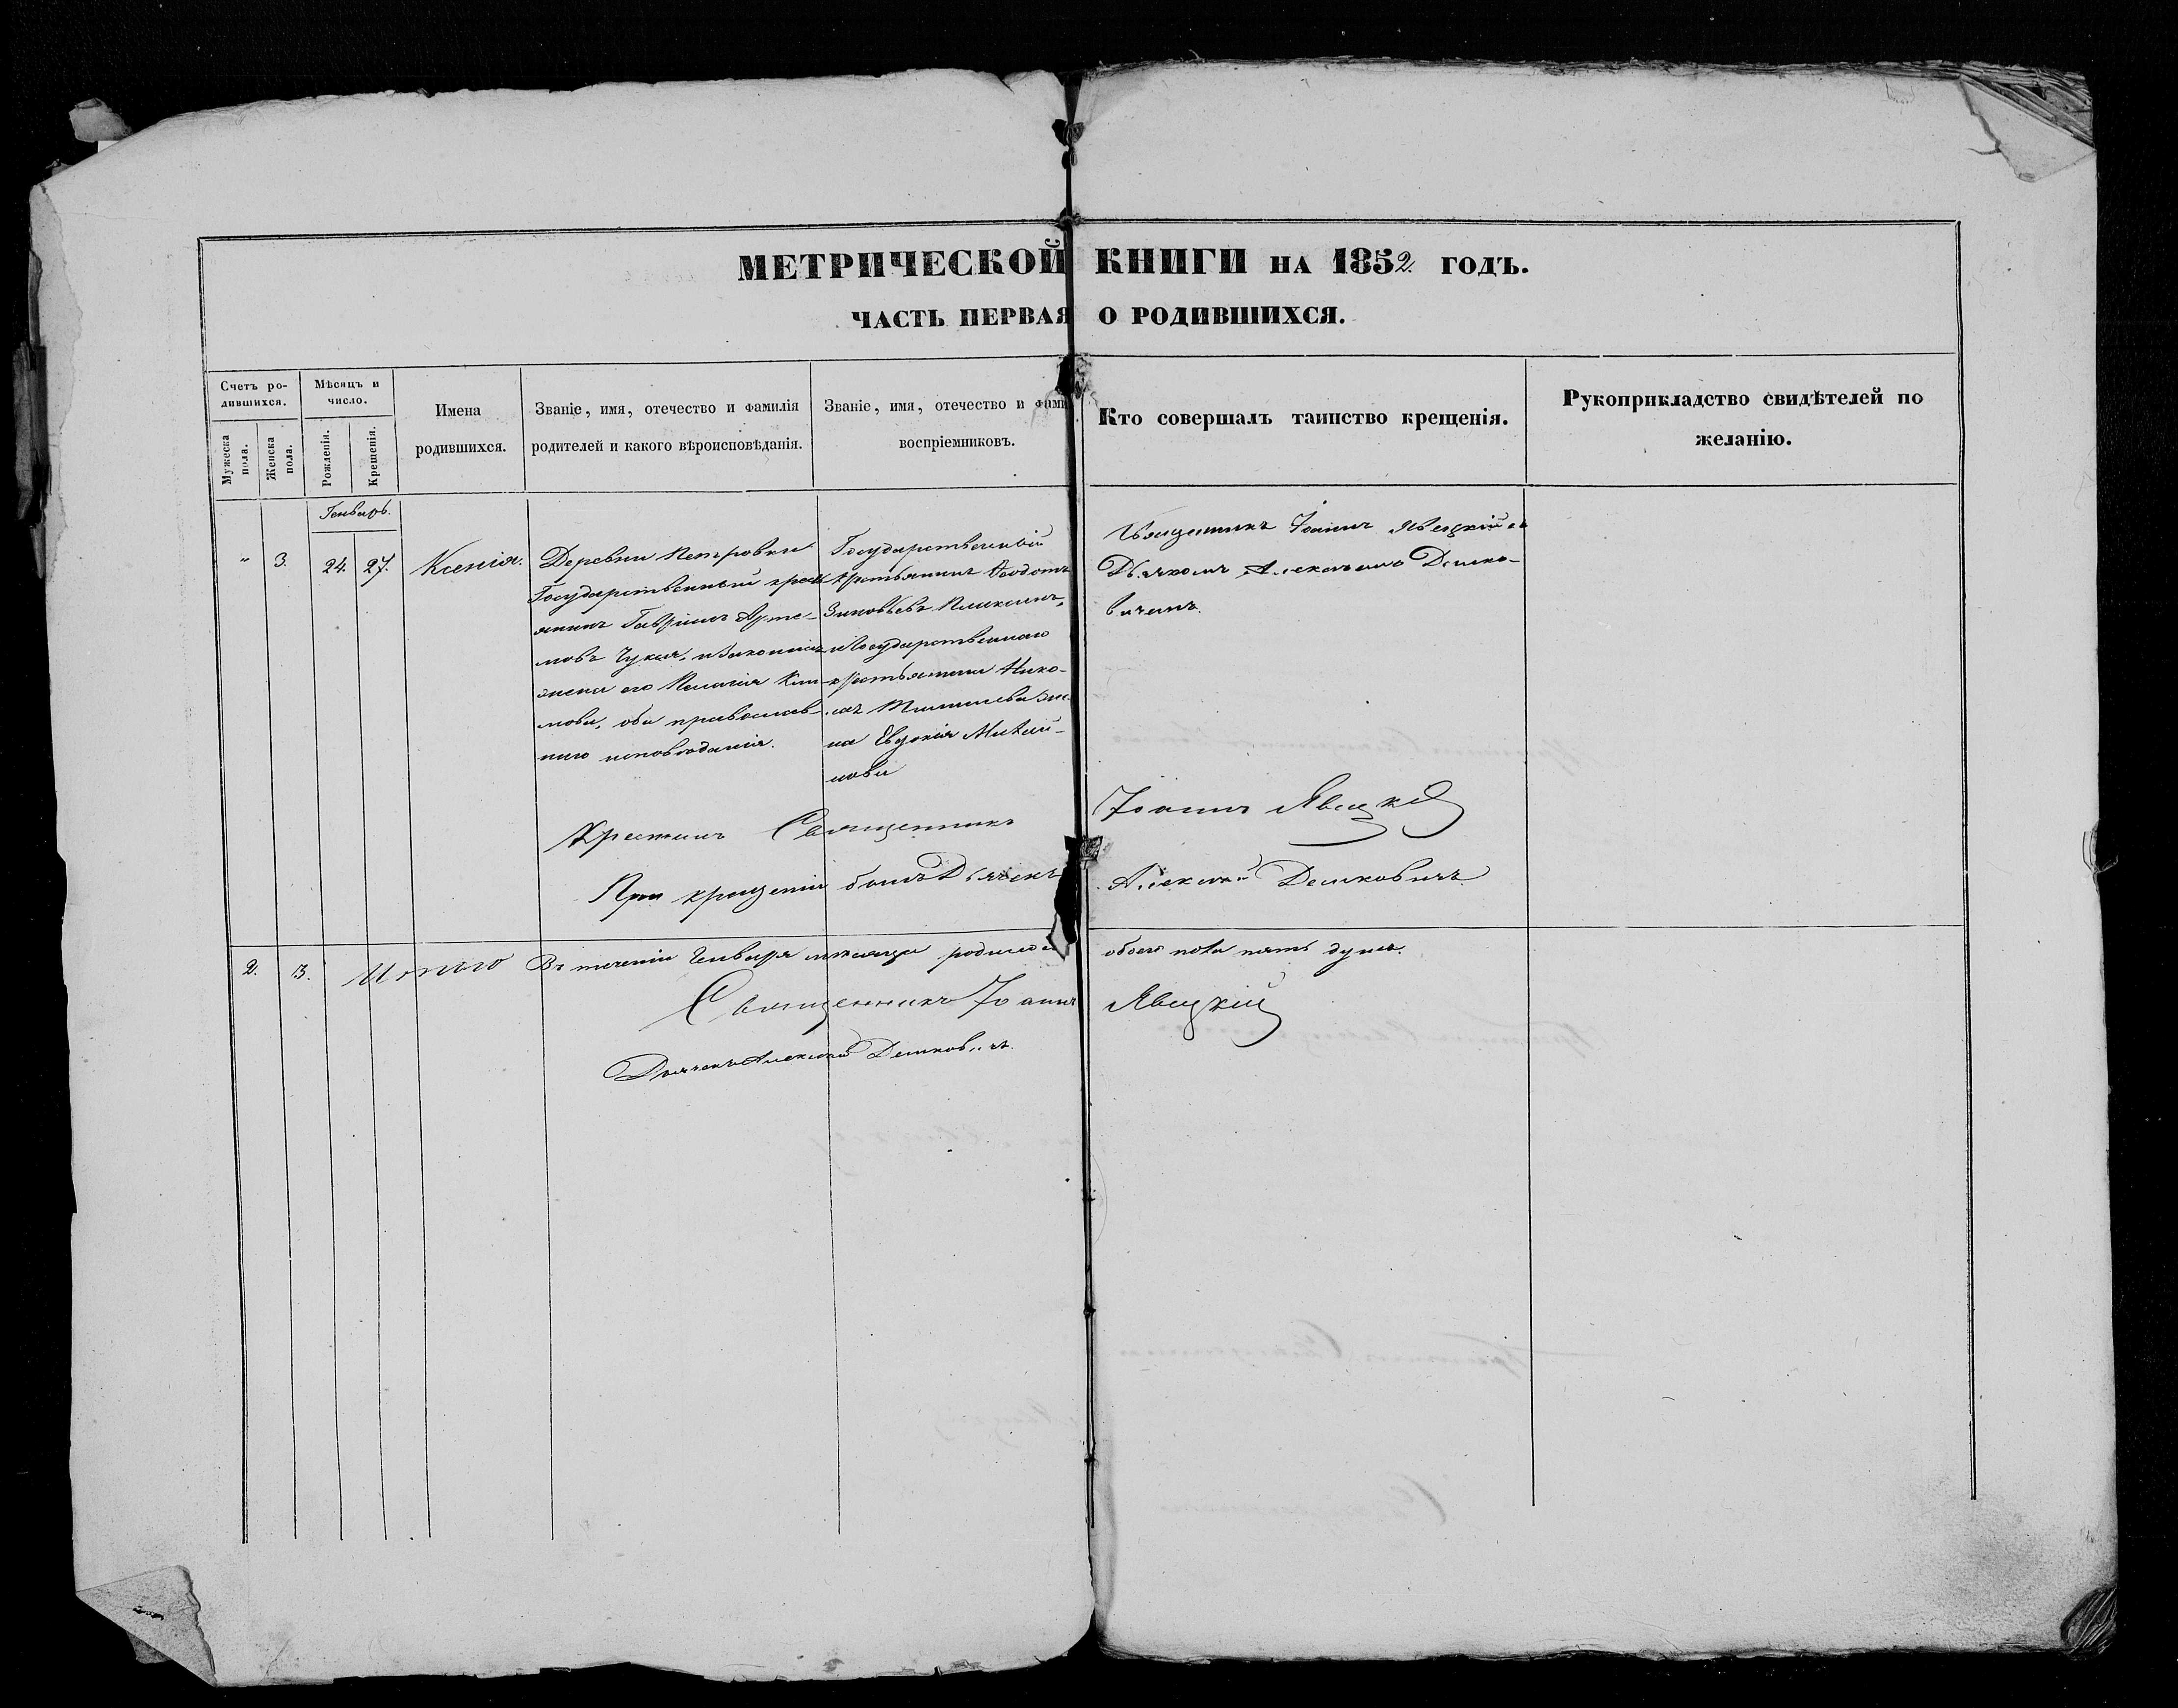 МЕТРИЧЕСКОЙ КНИГИ НА 1852 ГОДЪ.
ЧАСТЬ ПЕРВАЯ О РОДИВШИХСЯ.
Счетъ ро-
дившихся.
Мужеска пола.
Женска пола.
Мѣсяцъ и
число.
Рожденія.
Крещенія.
Имена
родившихся.
Званіе, имя, отечество и фамилія
родителей и какого вѣроисповѣданія.
Званіе, имя, отечество и фами
воспріемниковъ.
Кто совершалъ таинство крещенія.
Рукоприкладство свидѣтелей по
желанію.
Генварь.
" 3. 24. 27. Ксенія.
Деревни Петровки
Государственный крест
янинъ Гавріилъ Арте-
мовъ Чукал, и законная
жена его Пелагія Кли-
мова, оба православ-
наго исповѣданія.
Государственный
крестьянинъ Ѳеодотъ
Зиновьевъ
и Государственнаго
крестьянина Нико-
лая же-
на Евдокія Михай-
лова
Священникъ Іоаннъ Явецкій съ
Дьячкомъ Алексѣемъ Демко-
вичемъ.
Крестилъ Священникъ Іоаннъ Явецкій
При крещеніи былъ Дьячекъ Алексѣй Демковичъ.
2. 3. Итого Въ теченіи Генваря мѣсяца родилось обоего пола пять душъ.
Священникъ Іоаннъ Явецкій
Дьячекъ Алексѣй Демковичъ.